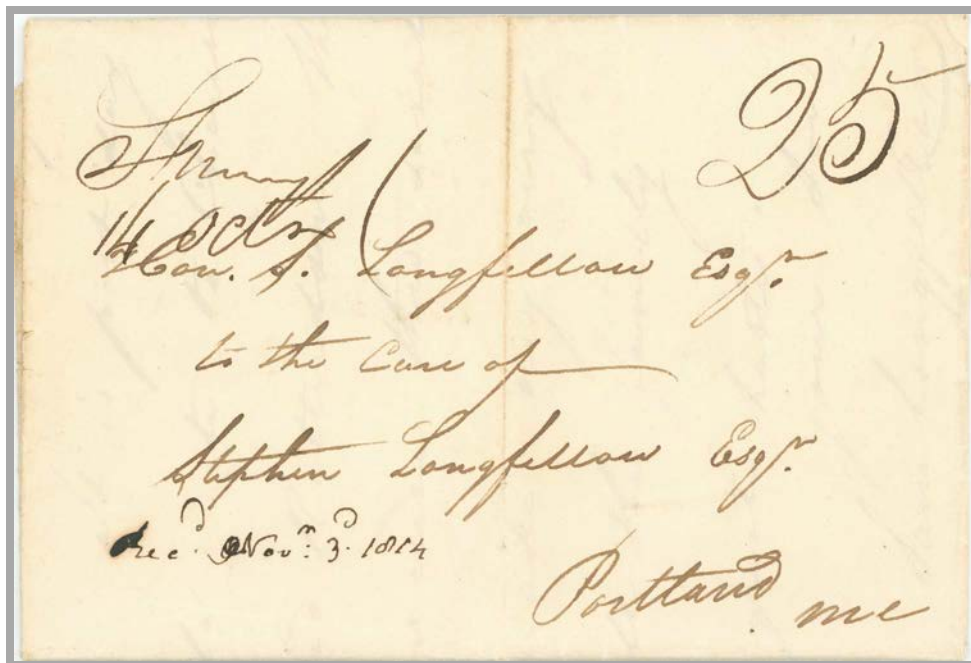 25
14 Octr
Hon. S. Longfellow Esqr.
to the care of
Stephen Longfellow Esqr.
Recd. Novm: 3d. 1814
Portland me